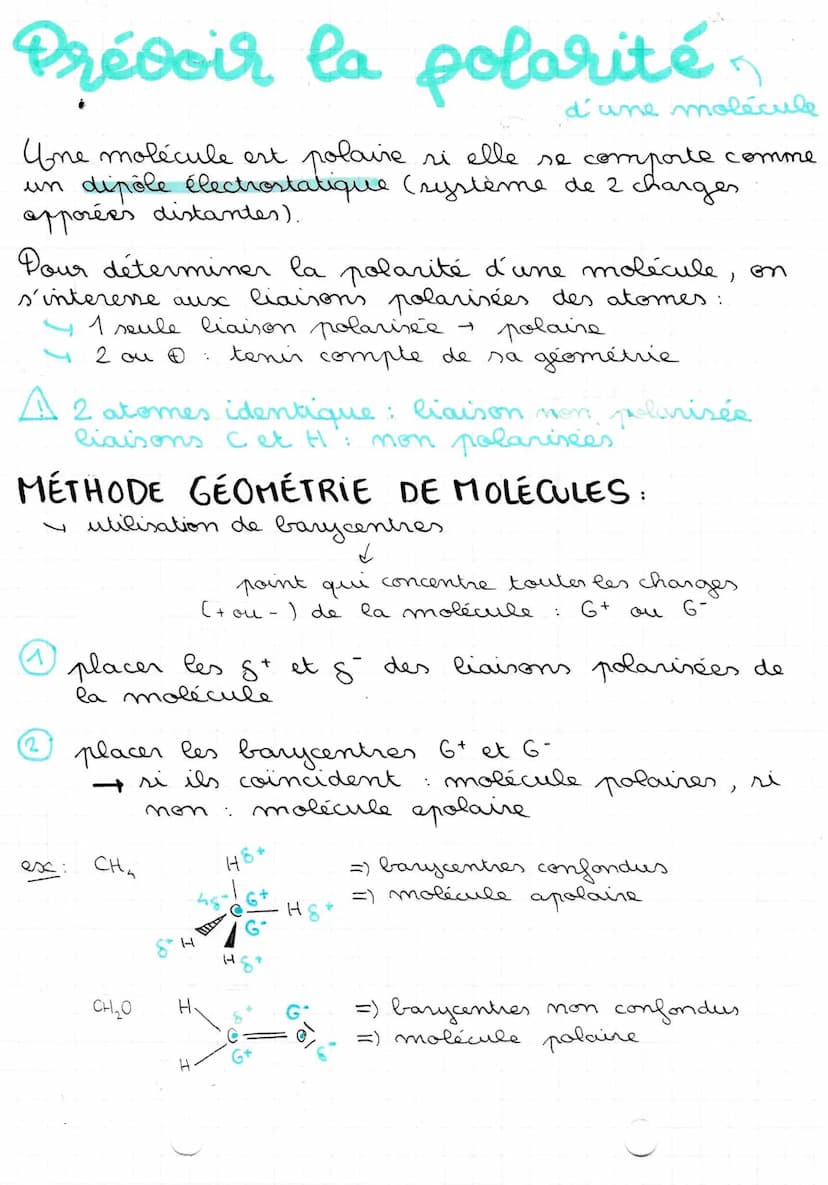 Prévoir la polarité
d'une molécule
Une molécule est polaire si elle se comporte comme
un dipôle électrostatique (système de 2 charges
opposées distantes).
Pour déterminer la polarité d'une molécule, on
s'interesse aux liaisons polarisées des atomes :
↳ 1 seule liaison polarisée → polaire
↳ 2 ou ⊕ : tenir compte de sa géométrie
⚠ 2 atomes identique : liaison non polarisée
liaisons C et H : non polarisées
MÉTHODE GÉOMÉTRIE DE MOLÉCULES :
↳ utilisation de barycentres
↓
point qui concentre toutes les charges
(+ ou -) de la molécule : G+ ou G-
1 placer les δ+ et δ- des liaisons polarisées de
la molécule
2 placer les barycentres G+ et G-
→ si ils coïncident : molécule polaires, si
non : molécule apolaire
ex : CH₄ H δ+ => barycentres confondus
4δ- G+ => molécule apolaire
C H δ+
G-
δ+ H
H δ+
CH₂O H δ+ G- => barycentres non confondus
C O => molécule polaire
H G+ δ-